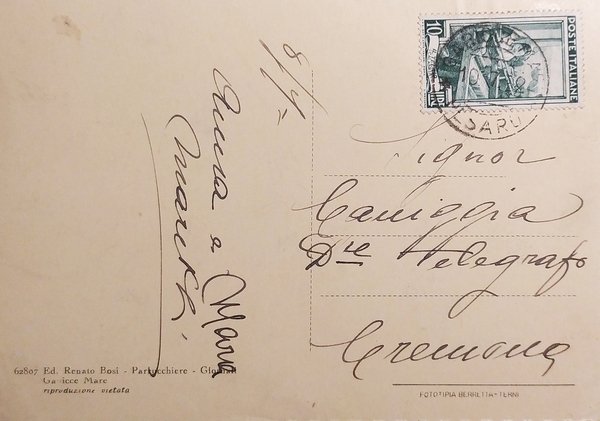 POSTE ITALIANE
10 LIRE
PESARO
8/7=
Anna e Mara
Signor
Caniggia
Dre Telegrafo
Cremona
62807 Ed. Renato Bosi - Parrucchiere - Giornali
Gabicce Mare
riproduzione vietata
FOTOTIPIA BERRETTA - TERNI